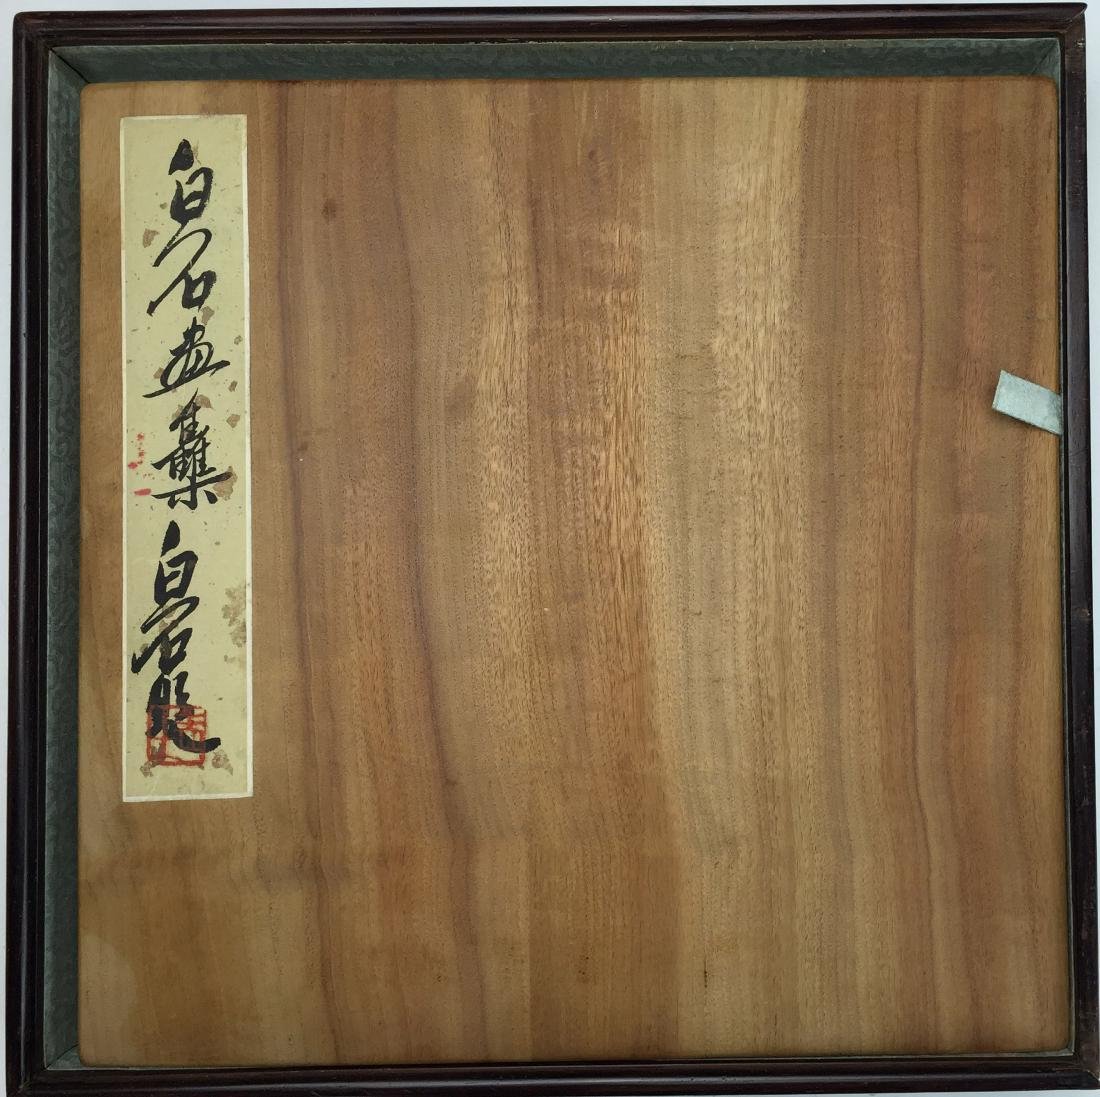 白石画集白石题